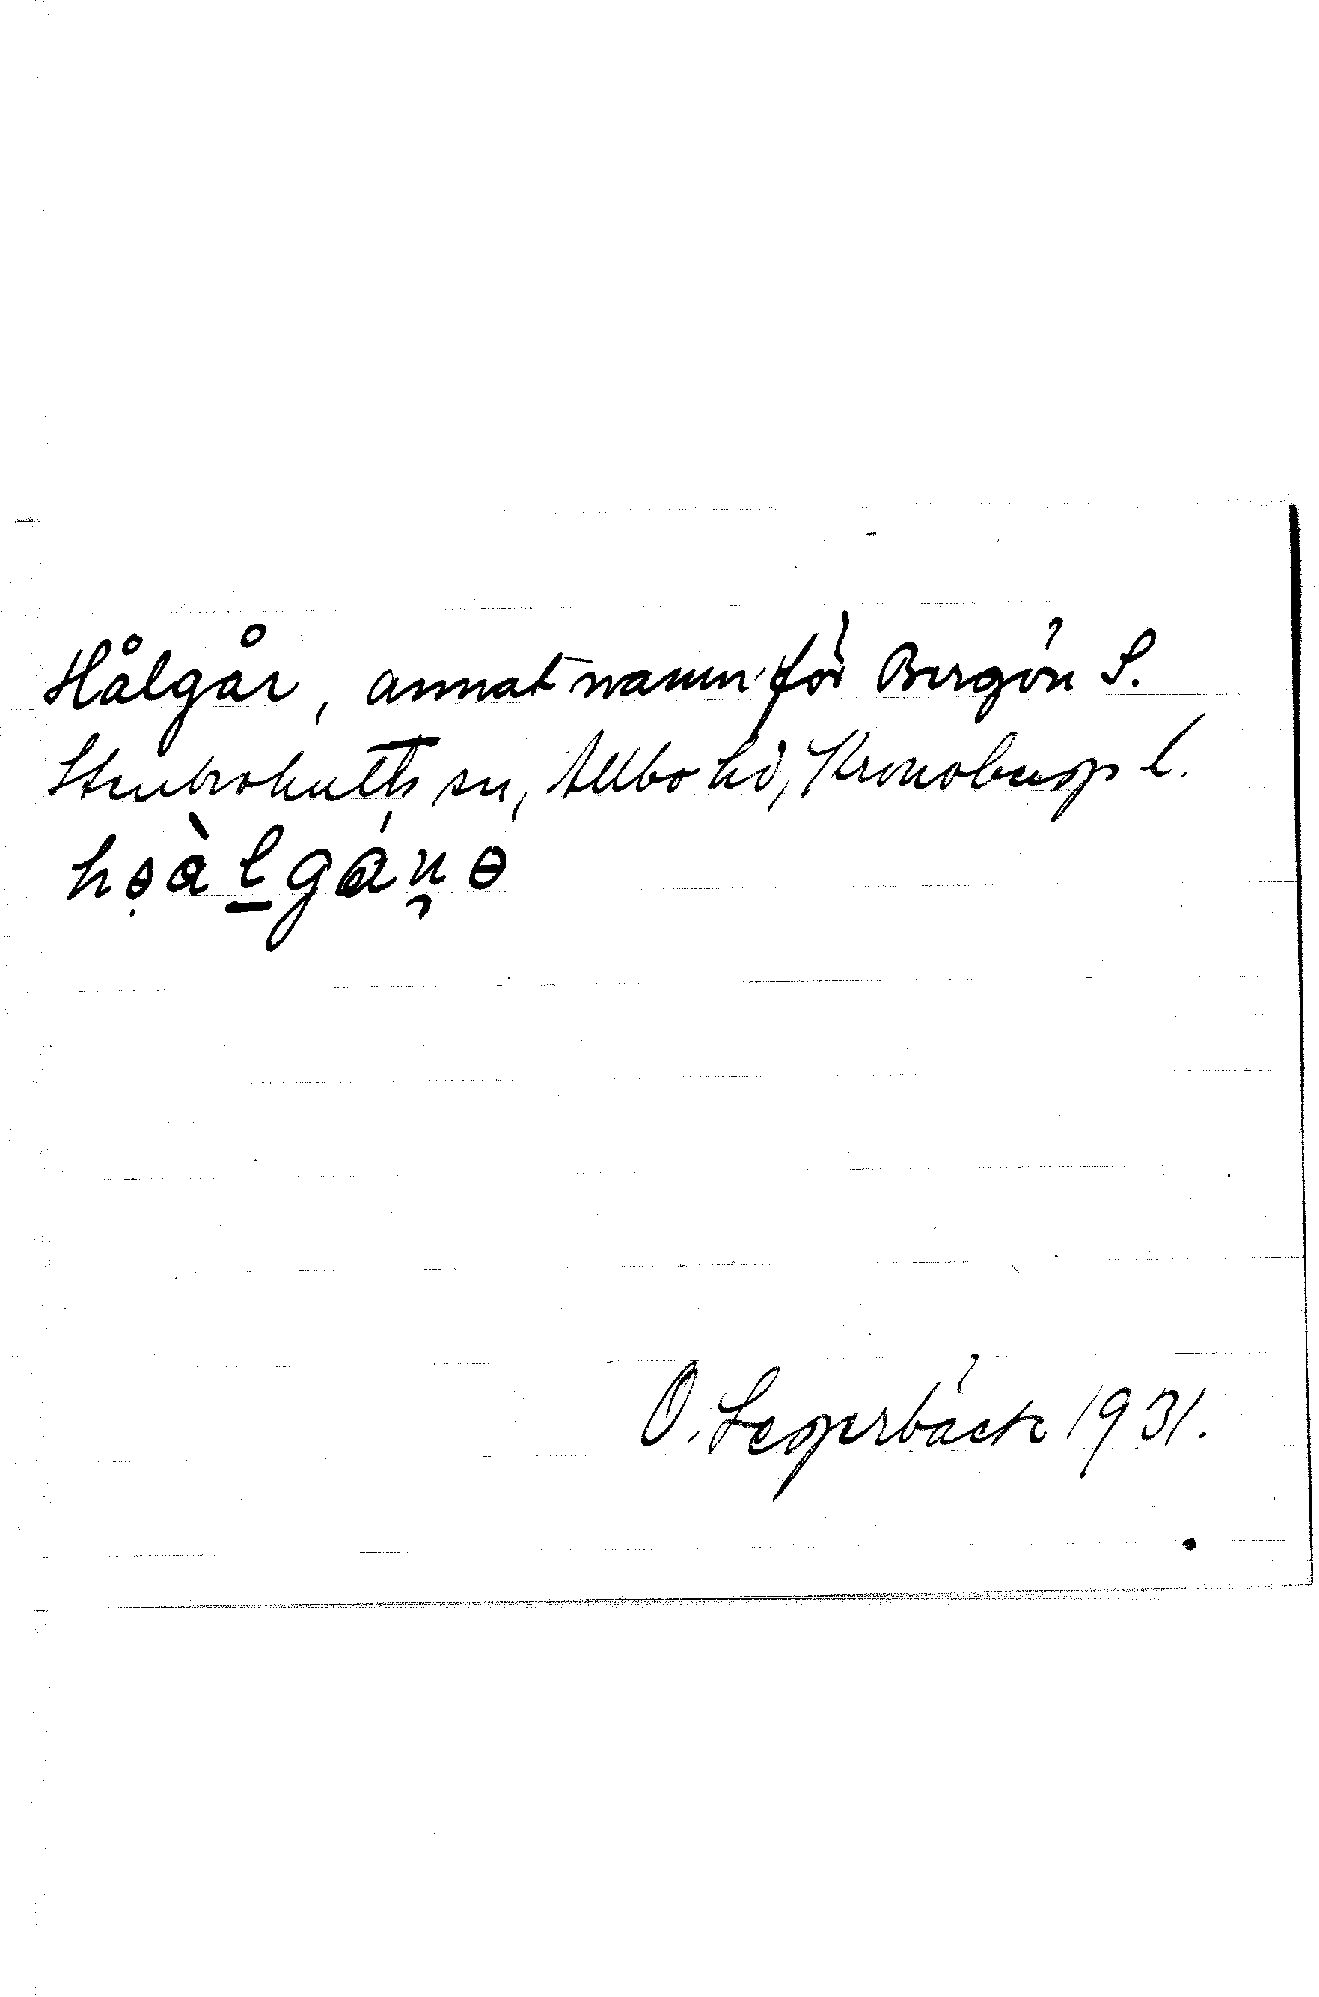 Hålgår, annat namn för Bergön S.
Stenbrohults sn, Allbo hd, Kronobergs l.
O. Lagerbäck 1931.